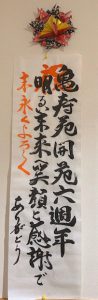 祝
亀寿苑開苑六週年
明るい未来へ笑顔と感謝で
末永くよろしく
ありがとう